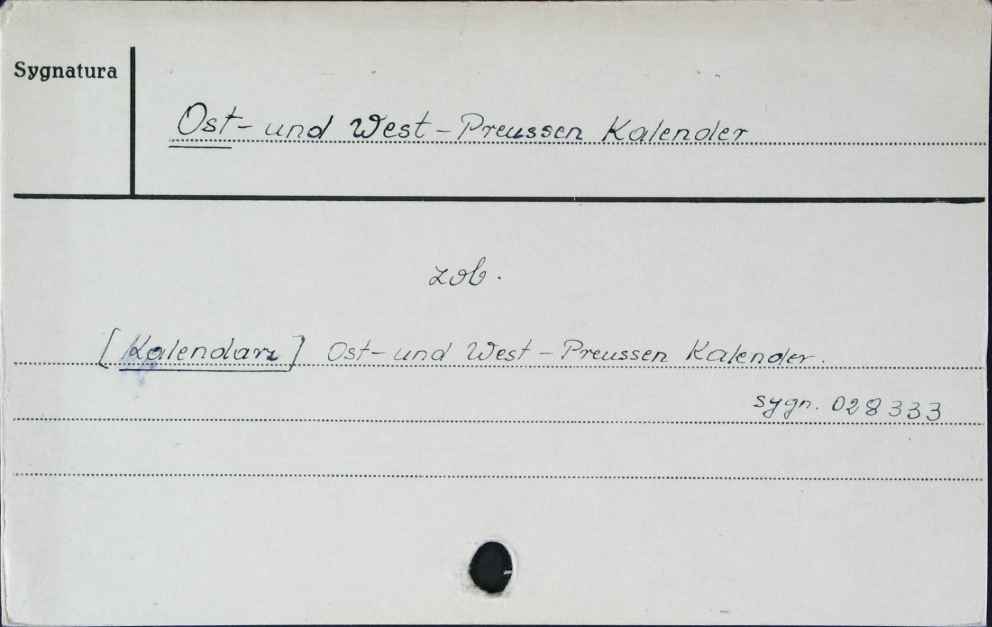 Sygnatura
Ost- und West-Preussen Kalender
zob.
[Kalendarz] Ost- und West-Preussen Kalender.
sygn. 028333